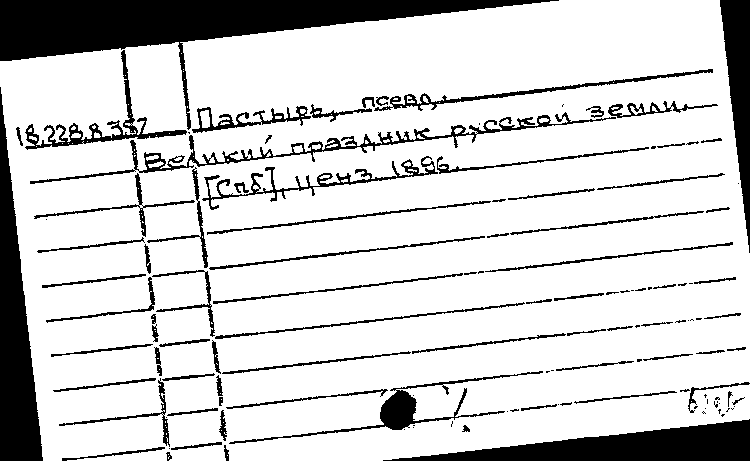 Пастырь, псевд.
18.228.8.387
Великий праздник русской земли.
[Спб], ценз. 1886.